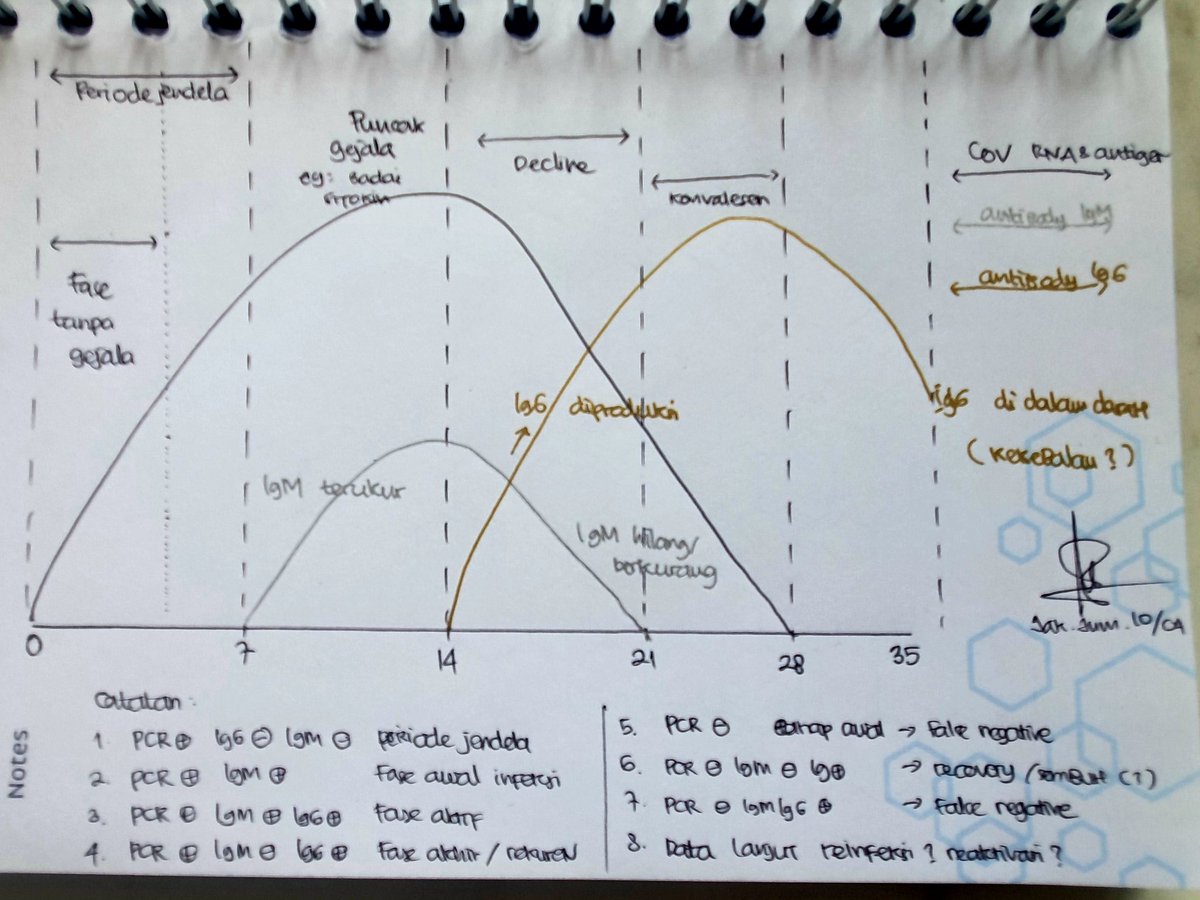 Periode jendela
Puncak
gejala
eg: badai
sitokin
Decline
Konvalesen
COV RNA & antigen
antibody IgM
antibody IgG
Fase
tanpa
gejala
IgG diproduksi
IgG di dalam darah
(Kekebalan ?)
IgM terukur
IgM hilang/
berkurang
0
7
14
21
28
35
Catatan:
1. PCR ⊕ IgG ⊖ IgM ⊖ periode jendela
2. PCR ⊕ IgM ⊕ Fase awal infeksi
3. PCR ⊕ IgM ⊕ IgG ⊕ Fase aktif
4. PCR ⊕ IgM ⊖ IgG ⊕ Fase akhir / rekuren
5. PCR ⊖ awal → False negative
6. PCR ⊖ IgM ⊖ Ig ⊕ → recovery / sembuh (?)
7. PCR ⊖ IgM IgG ⊕ → False negative
8. Data lanjut reinfeksi ? reaktivasi ?
Notes